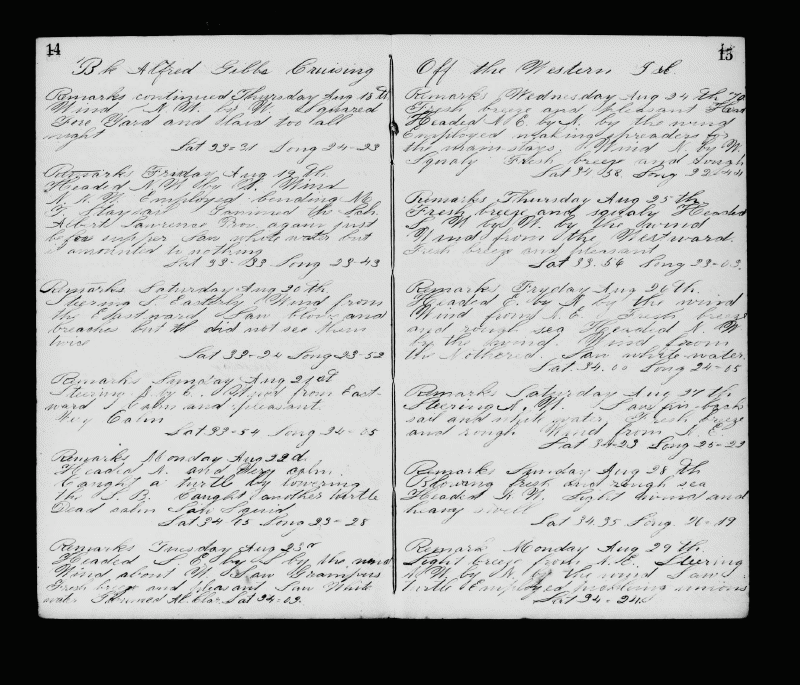 14
Bk Alfred Gibbs Cruising
Remarks continued Thursday Aug 18th
Wind N.W. by W. Squared
Fore Yard and laid too all
night
Lat 33-31 Long 24-23
Remarks Friday Aug 19th
Headed N.W. by N. Wind
N.N.W. Employed bending
F. Staysail Gammed the Sch
Albert Lawrence Prov again just
before supper Saw white water but
it amounted to nothing
Lat 33-33 Long 23-43
Remarks Saturday Aug 20th
Steering S. Easterly Wind from
the Eastward Saw blows and
breaches but did not see them
twice
Lat 33-24 Long 23-52
Remarks Sunday Aug 21st
Steering S. by E. Wind from East-
ward Calm and pleasant
Calm
Lat 33-54 Long 24-35
Remarks Monday Aug 22d
Headed N. and very calm
Caught a turtle by lowering
the S.B. Caught another turtle
Dead calm Saw Squid
Lat 34 15 Long 23-28
Remarks Tuesday Aug 23d
Headed S.E. by S. by the wind
Wind about W. Saw Grampus
Fresh breeze and pleasant Saw White
water Lat 34-03
15
Off the Western Isl
Remarks Wednesday Aug 24th 70
Fresh breeze and pleasant
Headed N.E. by N. by the wind
Employed making spreaders for
the mainstays. Wind N. by W.
Squaly Fresh breeze and rough
Lat 34 58 Long 22-44
Remarks Thursday Aug 25th
Fresh breeze and squaly Headed
S.W. by W. by the wind
Wind from the Westward.
Fresh breeze and pleasant
Lat 33.56 Long 23-03
Remarks Fryday Aug 26th
Headed E. by N. by the wind
Wind from N.E. Fresh breeze
and rough sea Headed N.W
by the wind. Wind from
the Nothered. Saw white water.
Lat. 34.00 Long 24-05
Remarks Saturday Aug 27th
Steering N.W. Saw fin backs
sail and white water Fresh breeze
and rough Wind from N.E.
Lat 34-23 Long 25-22
Remarks Sunday Aug 28th
Blowing fresh and rough sea
Headed N.W. Light wind and
heavy swell
Lat 34.35 Long. 26-19
Remark Monday Aug 29th
Light breeze from N.E. Steering
N.W. by N. by the wind Saw
turtle Employed
Lat 34-24